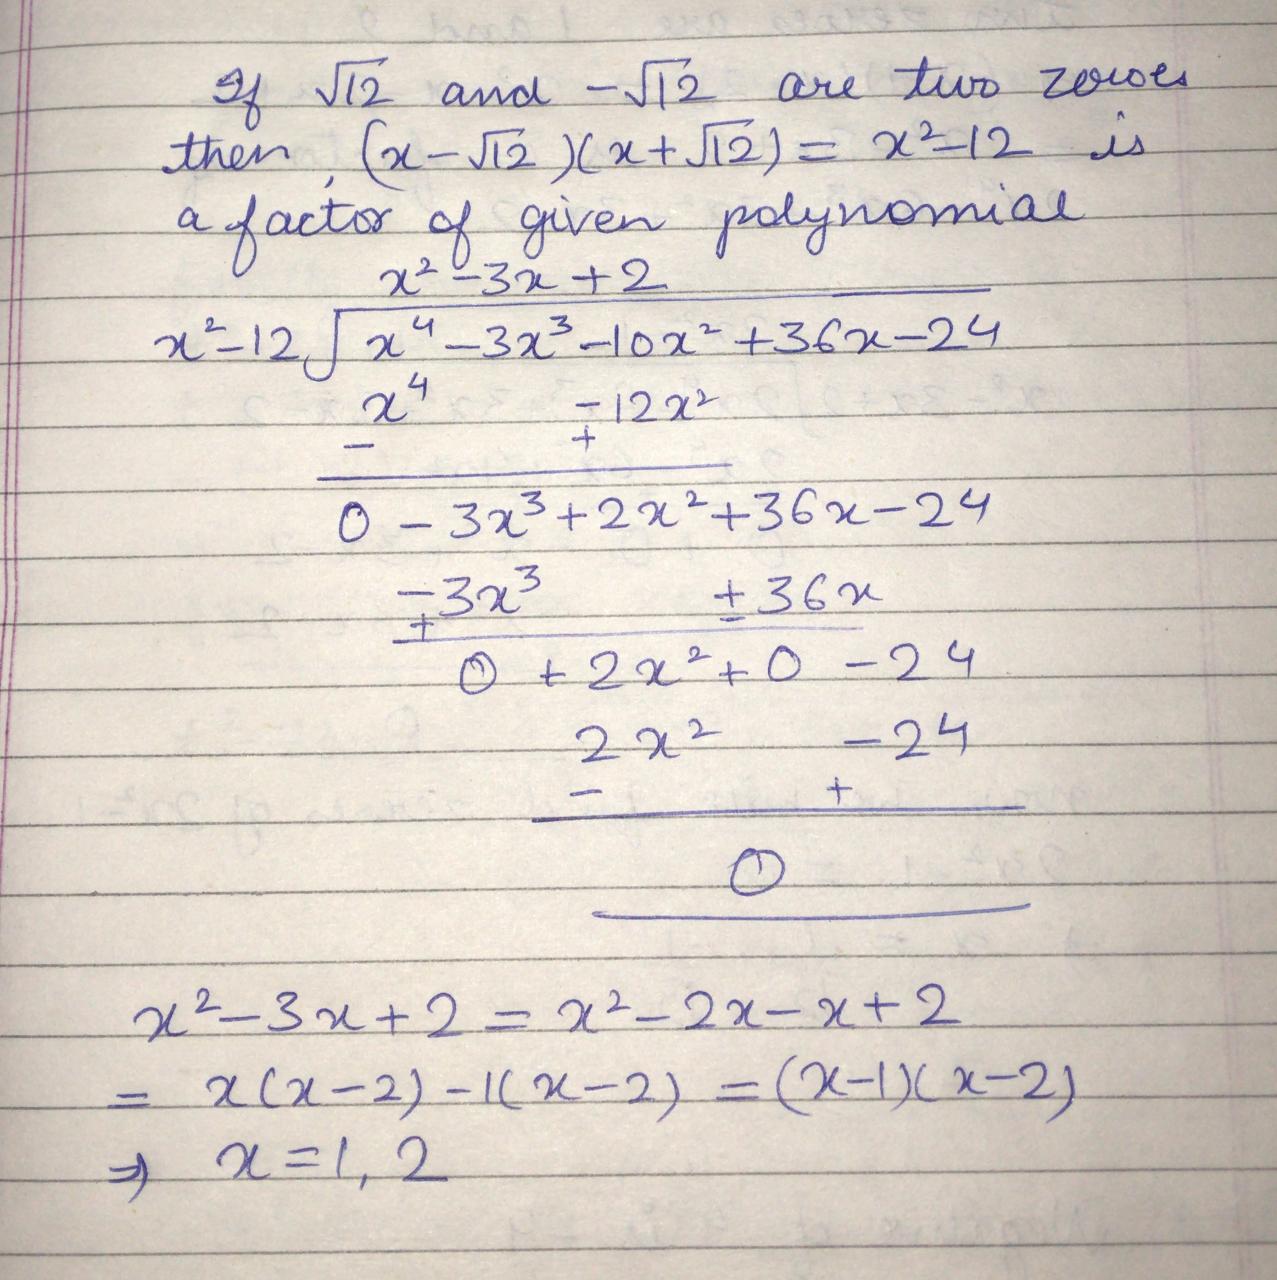 If √12 and -√12 are two zeroes
then, (x-√12)(x+√12) = x²-12 is
a factor of given polynomial
x²-3x+2
x²-12 √ x⁴-3x³-10x²+36x-24
x⁴ -12x²
- +
0 -3x³+2x²+36x-24
-3x³ +36x
+ -
0 +2x²+0 -24
2x² -24
- +
0
x²-3x+2 = x²-2x-x+2
= x(x-2)-1(x-2) = (x-1)(x-2)
⇒ x=1, 2